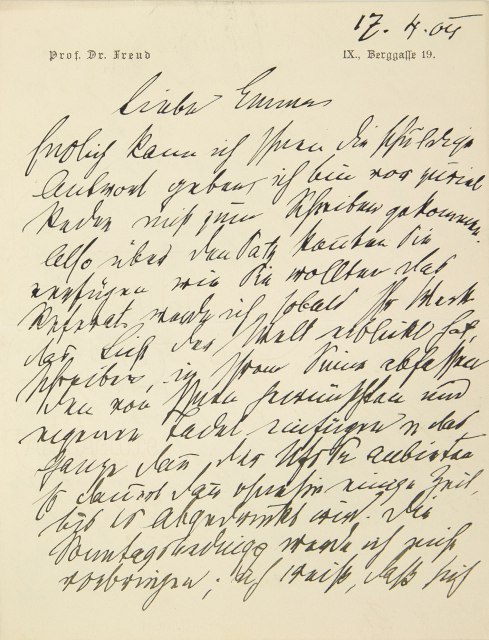 17. 4. 04
Prof. Dr. Freud IX., Berggasse 19.
Liebe Emma
Endlich kann ich Ihnen die schuldige
Antwort geben, ich bin vor zuviel
Reden nicht zum Schreiben gekommen.
Also über den Satz konnten Sie
verfügen wie Sie wollten das
Referat werde ich sobald Ihr Werk
das Licht der Welt erblickt hat,
schreiben, in Ihrem Sinne abfassen
den von Ihnen gewünschten und
eigenen Tadel einfügen u das
Ganze dann der anbieten
Es dauert dann ohnehin einige Zeit,
bis es abgedruckt wird. Die
werde ich nicht
vorbringen; ich weiß, daß sich